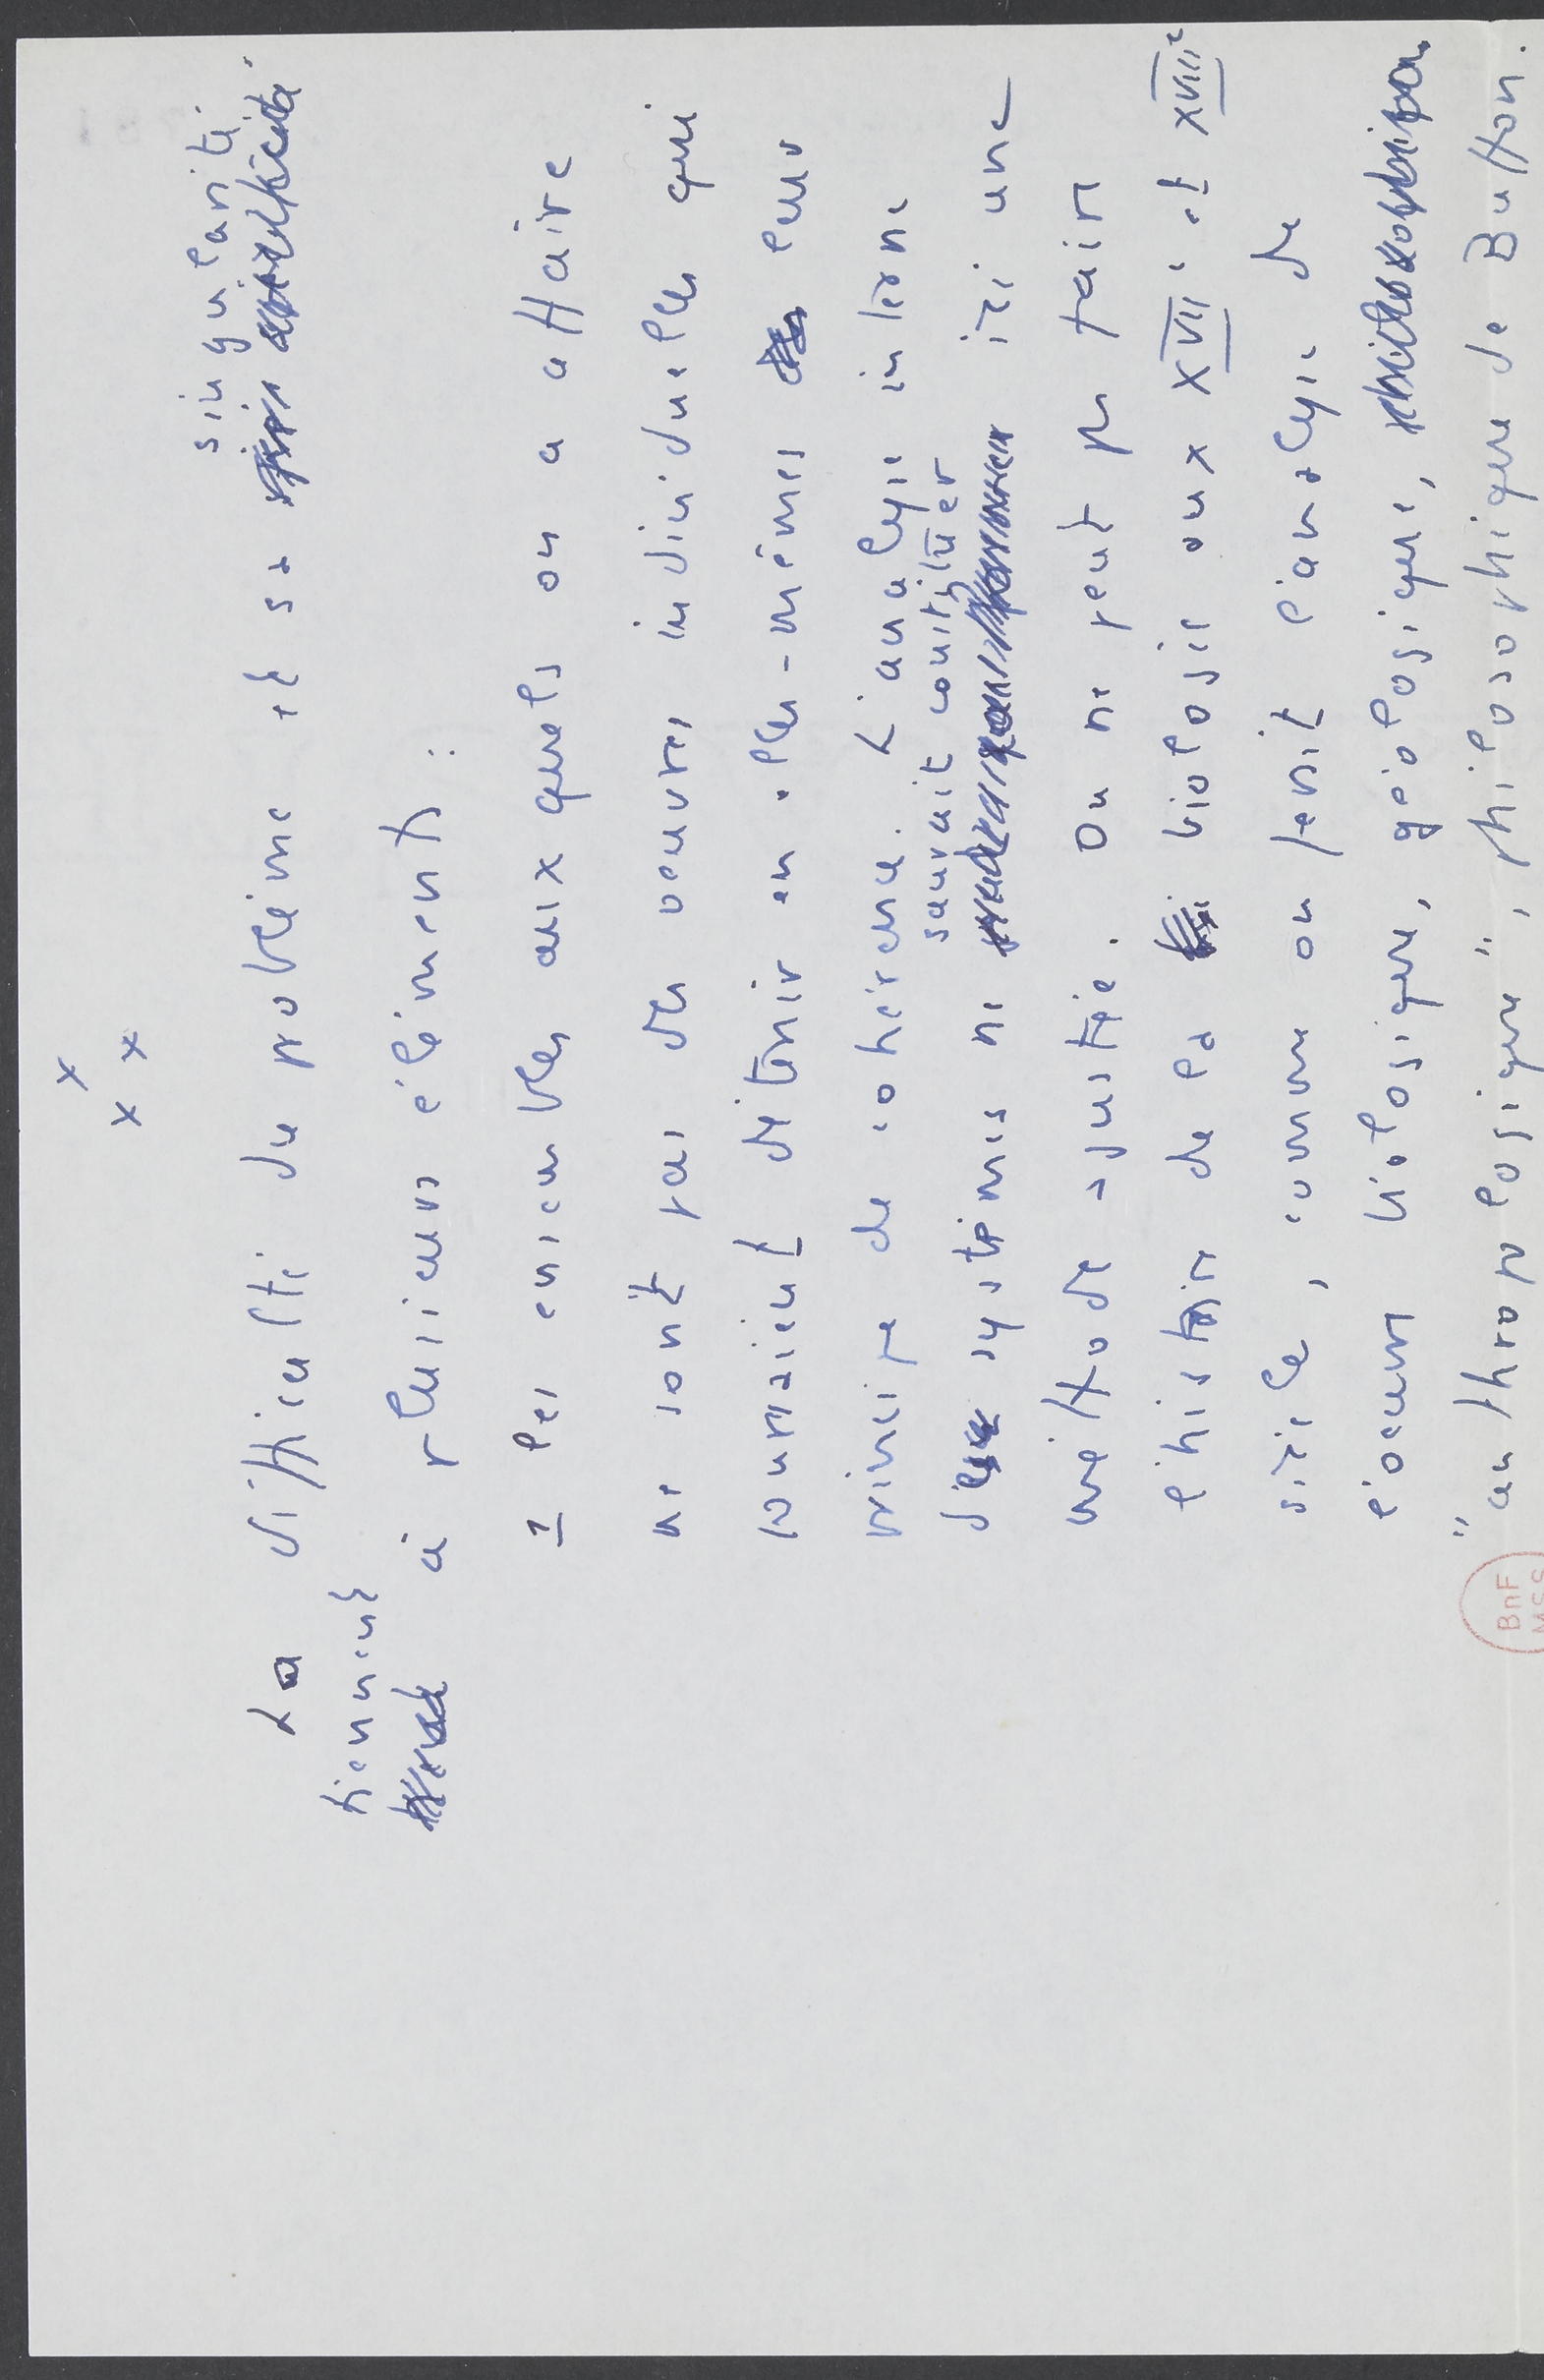 x
x x
La difficulté du problème et sa singularité
tiennent à plusieurs éléments :
1 les ensembles auxquels on a affaire
ne sont pas des oeuvres individuelles qui
pourraient détenir en elles-mêmes leur
principe de cohérence. L'analyse interne
des systèmes ne saurait constituer ici une
méthode adustée. On ne peut pas faire
l'histoire de la biologie aux XVIIe et XVIIIe
siècle, comme on ferait l'analyse de
l'oeuvre biologique, géologique,
"anthropologique", philosophique de Buffon.
BnF
MSS